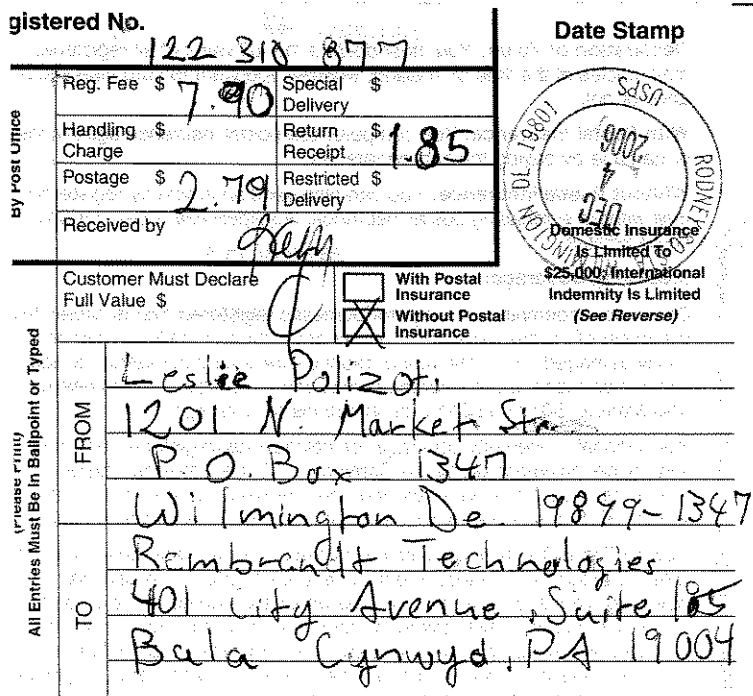 gistered No.
122 310 877
Date Stamp
Reg. Fee $ 7.90 Special Delivery $
Handling Charge $ Return Receipt $ 1.85
Postage $ 2.79 Restricted Delivery $
Received by
By Post Office
USPS
RODNEY SQ STA WILMINGTON DE 19801
DEC
4
2006
Domestic Insurance
Is Limited To
$25,000; International
Indemnity Is Limited
(See Reverse)
Customer Must Declare
Full Value $
With Postal
Insurance
Without Postal
Insurance
All Entries Must Be In Ballpoint or Typed
FROM
Leslie Polizoti
1201 N. Market Str.
P.O. Box 1347
Wilmington De. 19899-1347
TO
Rembrandt Technologies
401 City Avenue, Suite
Bala Cynwyd, PA 19004